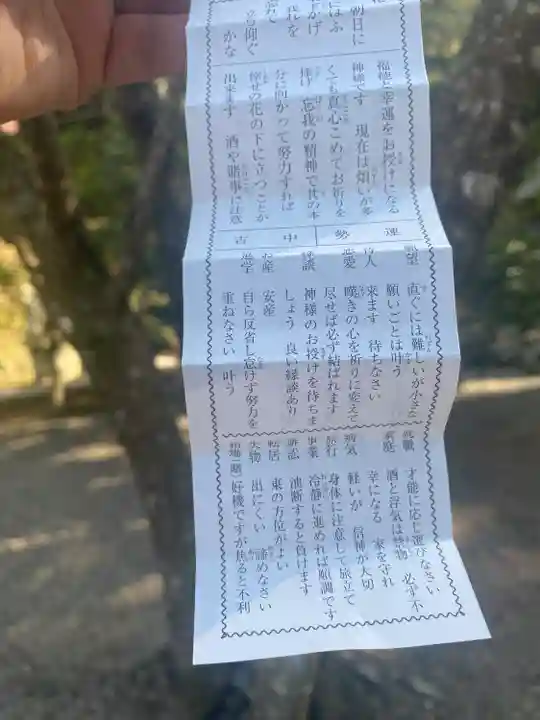 朝日に
はふ
すがけ
我を
立ち仰ぐ
かな
福徳と幸運をお授けになる
神様です 現在は煩いが多
くても真心こめてお祈りを
捧げ 忘我の精神で其の本
分に向かって努力すれば
倖せの花の下に立つことが
出来ます 酒や賭事に注意
運勢 中吉
願望 直ぐには難しいが小さな
願いごとは叶う
待人 来ます 待ちなさい
恋愛 嘆きの心を祈りに変えて
尽せば必ず結ばれます
縁談 神様のお授けを待ちま
しょう 良い縁談あり
お産 安産
進学 自ら反省し怠けず努力を
重ねなさい 叶う
就職 才能に応じ選びなさい
家庭 酒と浮気は禁物 必ず不
幸になる 家を守れ
病気 軽いが 信神が大切
旅行 身体に注意して旅立て
事業 冷静に進めれば順調です
訴訟 油断すると負けます
転居 東の方位がよい
失物 出にくい 諦めなさい
相場(賭) 好機ですが焦ると不利